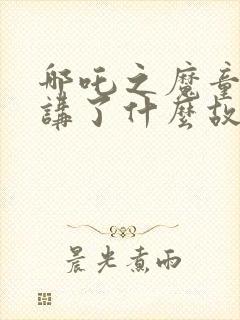 哪吒之魔童
講了什麼故
晨光煮雨